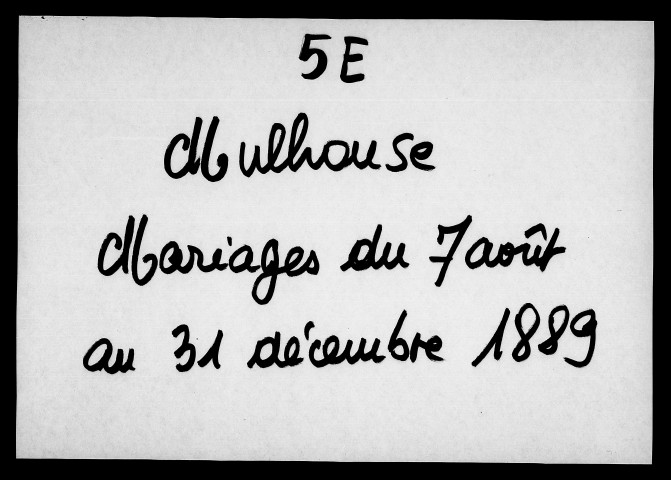 5E
Mulhouse
Mariages du 7 août
au 31 décembre 1889